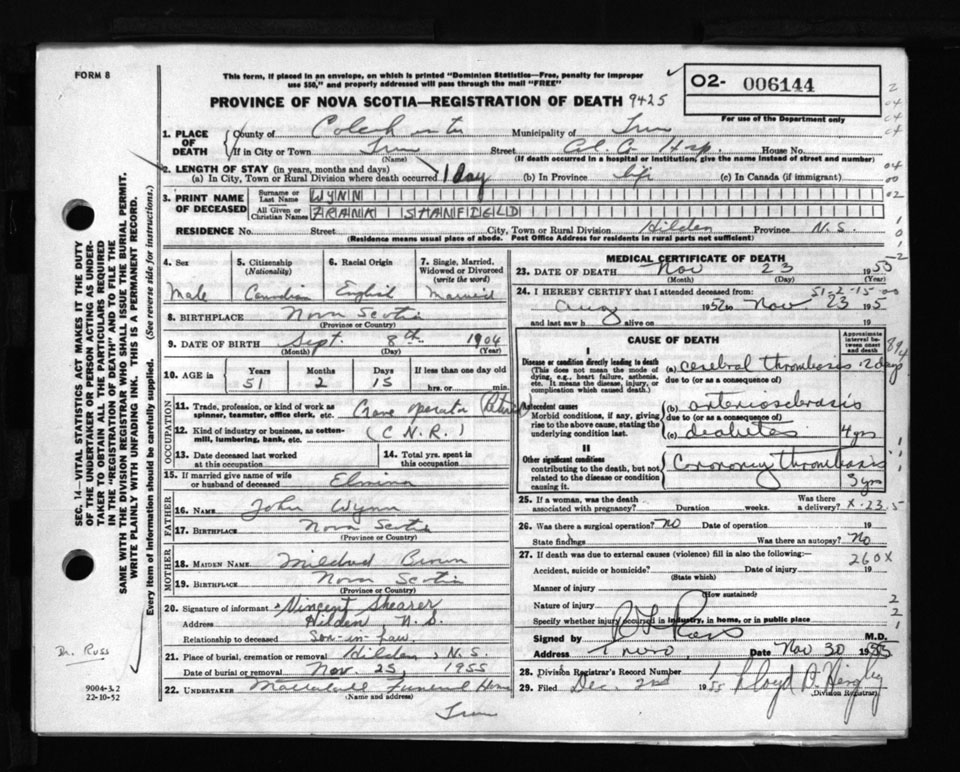 FORM 8
This form, if placed in an envelope, on which is printed "Dominion Statistics—Free, penalty for improper
use $50," and properly addressed will pass through the mail "FREE"
O2- 006144
For use of the Department only
PROVINCE OF NOVA SCOTIA—REGISTRATION OF DEATH 9425
1. PLACE OF DEATH County of Colchester Municipality of Truro
If in City or Town Truro Street Col. Co. Hosp. House No.
(Name) (If death occurred in a hospital or institution, give the name instead of street and number)
2. LENGTH OF STAY (in years, months and days)
(a) In City, Town or Rural Division where death occurred 1 day (b) In Province life (c) In Canada (if immigrant)
3. PRINT NAME OF DECEASED Surname or Last Name WYNN
All Given or Christian Names FRANK STANFIELD
RESIDENCE No. Street City, Town or Rural Division Hilden Province N.S.
(Residence means usual place of abode. Post Office Address for residents in rural parts not sufficient)
4. Sex Male
5. Citizenship (Nationality) Canadian
6. Racial Origin English
7. Single, Married, Widowed or Divorced (write the word) Married
8. BIRTHPLACE Nova Scotia
(Province or Country)
9. DATE OF BIRTH Sept. 8th 1904
(Month) (Day) (Year)
10. AGE in Years 51 Months 2 Days 15 If less than one day old hrs. or min.
OCCUPATION
11. Trade, profession, or kind of work as spinner, teamster, office clerk, etc. Crane operator (Retired)
12. Kind of industry or business, as cotton-mill, lumbering, bank, etc. (C.N.R.)
13. Date deceased last worked at this occupation
14. Total yrs. spent in this occupation
15. If married give name of wife or husband of deceased Elmina
FATHER
16. NAME John Wynn
17. BIRTHPLACE Nova Scotia
(Province or Country)
MOTHER
18. MAIDEN NAME Mildred Brown
19. BIRTHPLACE Nova Scotia
(Province or Country)
20. Signature of informant Vincent Shearer
Address Hilden N.S.
Relationship to deceased Son-in-law.
21. Place of burial, cremation or removal Hilden, N.S.
Date of burial or removal Nov. 25, 1955
22. UNDERTAKER Funeral Home
Truro
MEDICAL CERTIFICATE OF DEATH
23. DATE OF DEATH Nov 23 1955
(Month) (Day)
24. I HEREBY CERTIFY that I attended deceased from 51-2-15-00
Aug 1952 to Nov 23 195
and last saw h alive on 19
CAUSE OF DEATH
Approximate interval between onset and death
I
Disease or condition directly leading to death
(This does not mean the mode of dying, e.g., heart failure, asthenia, etc. It means the disease, injury, or complication which caused death.)
(a) cerebral thrombosis 2 days
due to (or as a consequence of)
Antecedent causes
Morbid conditions, if any, giving rise to the above cause, stating the underlying condition last.
(b) arteriosclerosis
due to (or as a consequence of)
(c) diabetes 4 yrs
II
Other significant conditions
contributing to the death, but not related to the disease or condition causing it.
Coronary thrombosis
3 yrs
25. If a woman, was the death associated with pregnancy? Duration weeks. Was there a delivery? X-23.5
26. Was there a surgical operation? No Date of operation 19
State findings Was there an autopsy? No
27. If death was due to external causes (violence) fill in also the following:—
260X
Accident, suicide or homicide? Date of injury 19
(State which)
Manner of injury
(How sustained)
Nature of injury
Specify whether injury occurred in industry, in home, or in public place
Signed by Ross M.D.
Address Truro Date Nov 30 1955
28. Division Registrar's Record Number 1
29. Filed Dec. 2nd 1955 Lloyd D. Hingley
(Division Registrar)
SEC. 14—VITAL STATISTICS ACT MAKES IT THE DUTY
OF THE UNDERTAKER OR PERSON ACTING AS UNDER-
TAKER TO OBTAIN ALL THE PARTICULARS REQUIRED
IN THE "REGISTRATION OF DEATH" AND TO FILE THE
SAME WITH THE DIVISION REGISTRAR WHO SHALL ISSUE THE BURIAL PERMIT.
WRITE PLAINLY WITH UNFADING INK. THIS IS A PERMANENT RECORD.
Every item of information should be carefully supplied. (See reverse side for instructions.)
Dr. Russ
9004-3.2
22-10-52